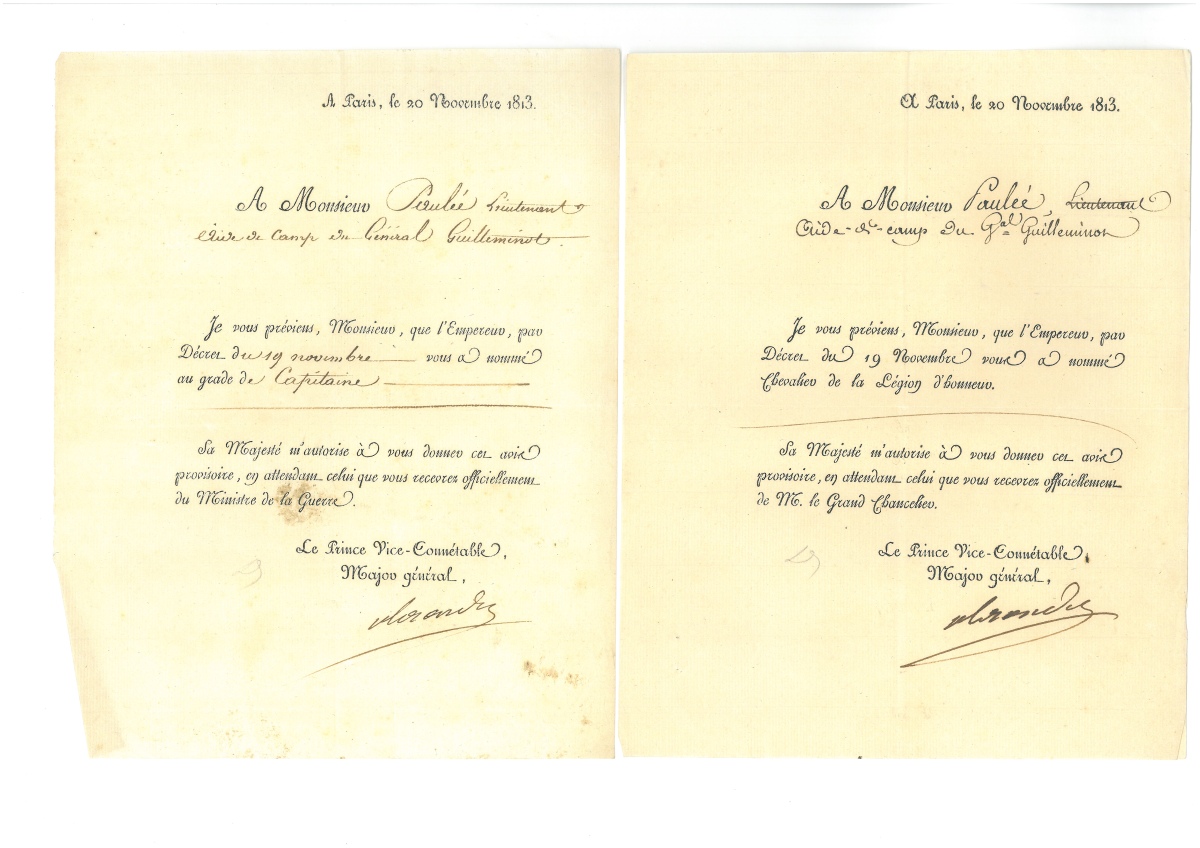 A Paris, le 20 Novembre 1813.
A Monsieur Paulée Lieutenant
Aide de Camp du Général Guilleminot.
Je vous préviens, Monsieur, que l'Empereur, par
Décret du 19 novembre vous a nommé
au grade de Capitaine
Sa Majesté m'autorise à vous donner cet avis
provisoire, en attendant celui que vous recevrez officiellement
du Ministre de la Guerre.
Le Prince Vice-Connétable,
Major général,
Alexandre
A Paris, le 20 Novembre 1813.
A Monsieur Paulée, Lieutenant
Aide-de-camp du Gal Guilleminot
Je vous préviens, Monsieur, que l'Empereur, par
Décret du 19 Novembre vous a nommé
Chevalier de la Légion d'honneur.
Sa Majesté m'autorise à vous donner cet avis
provisoire, en attendant celui que vous recevrez officiellement
de M. le Grand Chancelier.
Le Prince Vice-Connétable,
Major général,
Alexandre